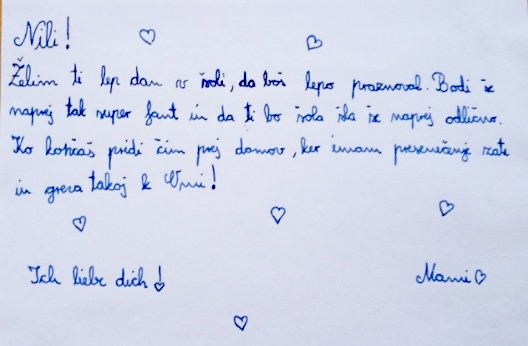 Nili! ♡ ♡
Želim ti lep dan v šoli, da boš lepo praznoval. Bodi še
naprej tak super fant in da ti bo šola šla še naprej odlično.
Ko končaš pridi čim prej domov, ker imam presenečenje zate
in greva takoj k Umi!
♡ ♡ ♡
Ich liebe dich! Mami ♡
♡